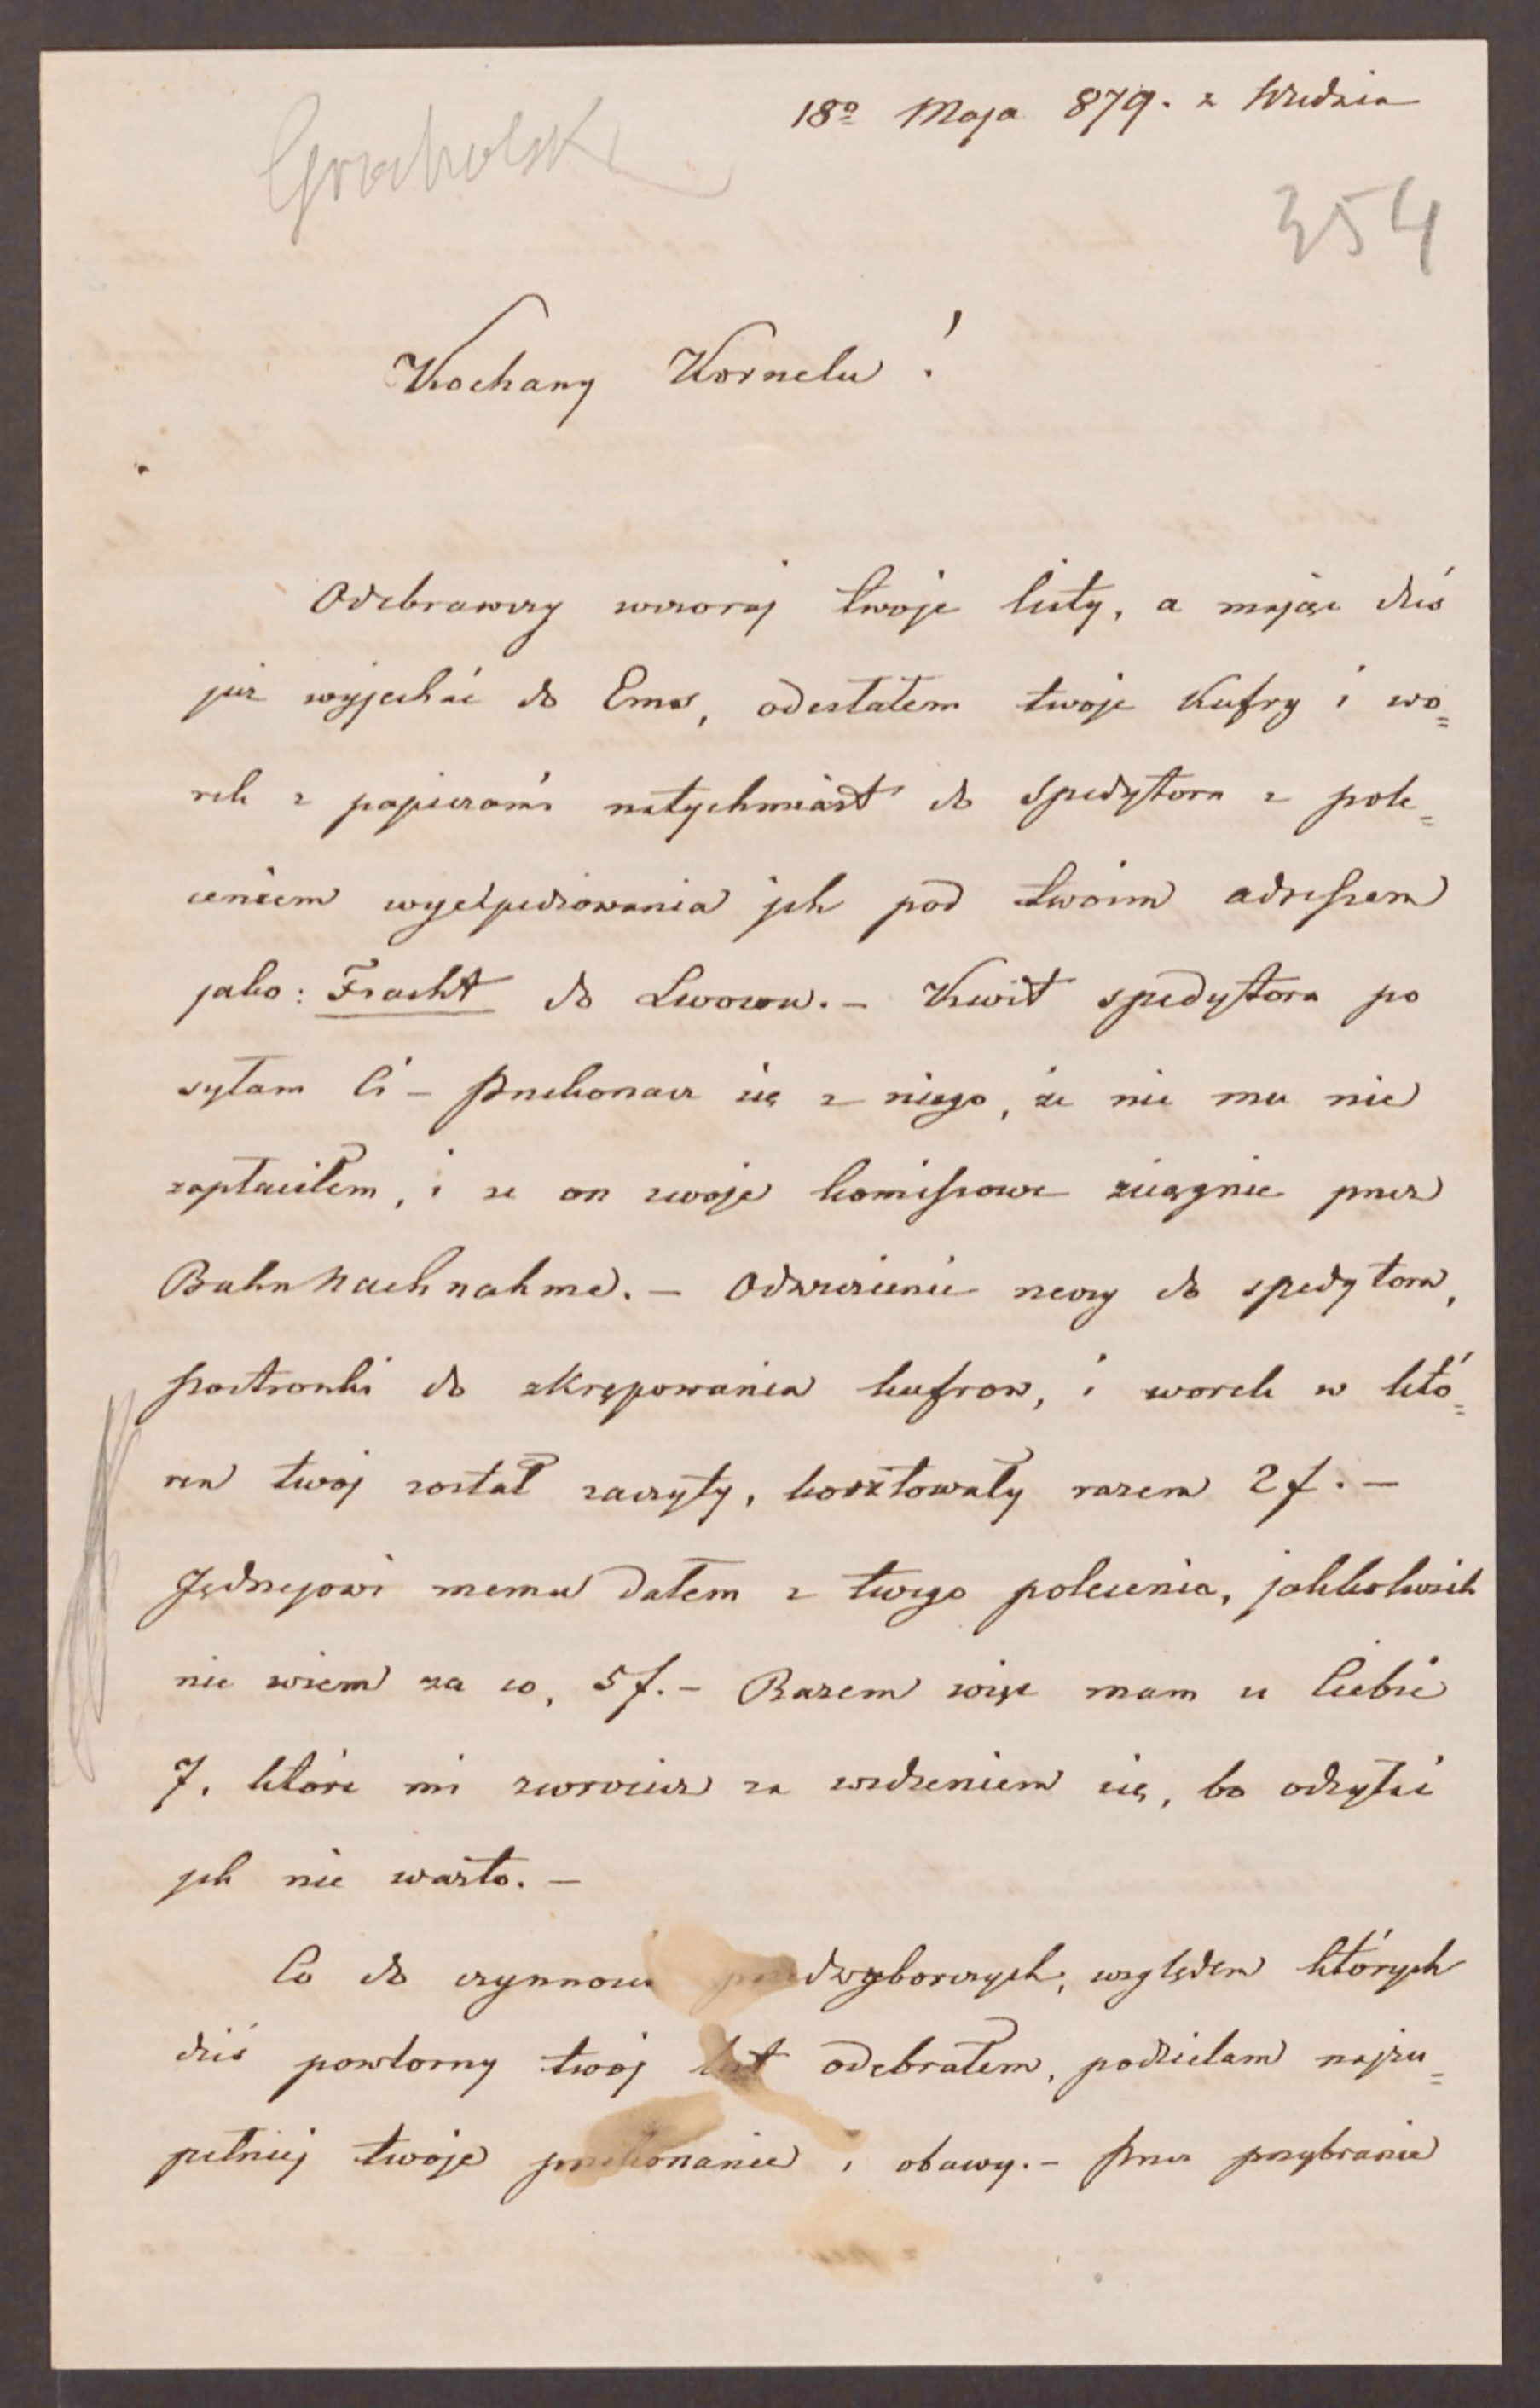 18º Maja 879. z Wiednia
Grocholski
354
Kochany Kornelu!
Odebrawszy wczoraj twoje listy, a mając dziś
już wyjechać do Ems, odesłałem twoje kufry i wo=
rek z papierami natychmiast do spedytora z pole=
ceniem wyexpediowania ich pod twoim adressem
jako: Fracht do Lwowa. – Kwit spedytora po
syłam Ci – Przekonasz się z niego, że nic mu nie
zapłaciłem, i że on swoje komissowe ściągnie przez
Bahn Nachnahme. – Odwiezienie rzeczy do spedytora,
postronki do skrępowania kufrow, i worek w któ=
ren twoj został zaszyty, kosztowały razem 2 f. –
Jędrzejowi memu dałem z twego polecenia, jakkolwiek
nie wiem za co, 5 f. – Razem więc mam u Ciebie
7. które mi zwrocisz za widzeniem się, bo odsyłać
ich nie warto. –
Co do czynności przedwyborczych, względem których
dziś powtorny twoj list odebrałem, podzielam najzu=
pełniej twoje przekonanie i obawy. – Przez przybranie